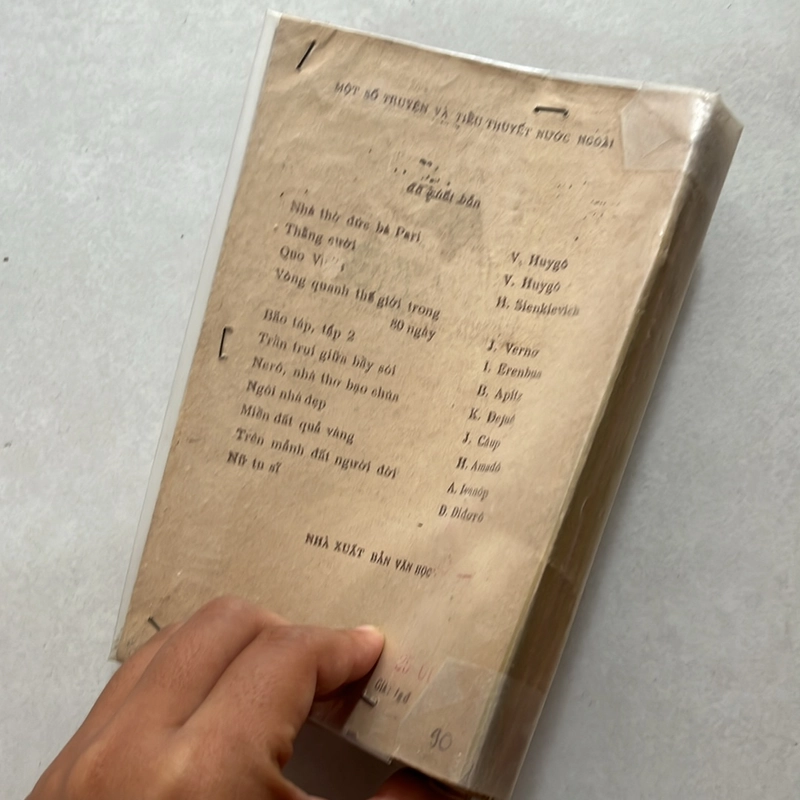 MỘT SỐ TRUYỆN VÀ TIỂU THUYẾT NƯỚC NGOÀI
đã xuất bản
Nhà thờ đức bà Pari V. Huygô
Thằng cười V. Huygô
Quo H. Sienkievich
Vòng quanh thế giới trong
80 ngày J. Vernơ
Bão táp, tập 2 I. Êrenbua
Trần trụi giữa bầy sói B. Apitz
Nerô, nhà thơ bạo chúa K. Dejuê
Ngôi nhà đẹp J. Câup
Miền đất quả vàng H. Amađô
Trên mảnh đất người đời A. Ivanôp
Nữ tu sĩ D. Diđơrô
NHÀ XUẤT BẢN VĂN HỌC
Giá:
90